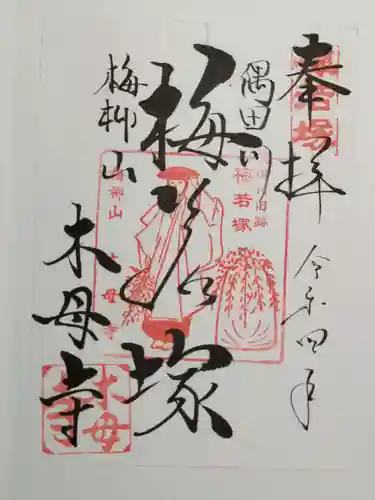 奉拝
令和四年
隅田川
梅若塚
梅柳山
木母寺
梅若塚
隅田川旧跡
梅若塚
梅柳山
木母寺
木母寺